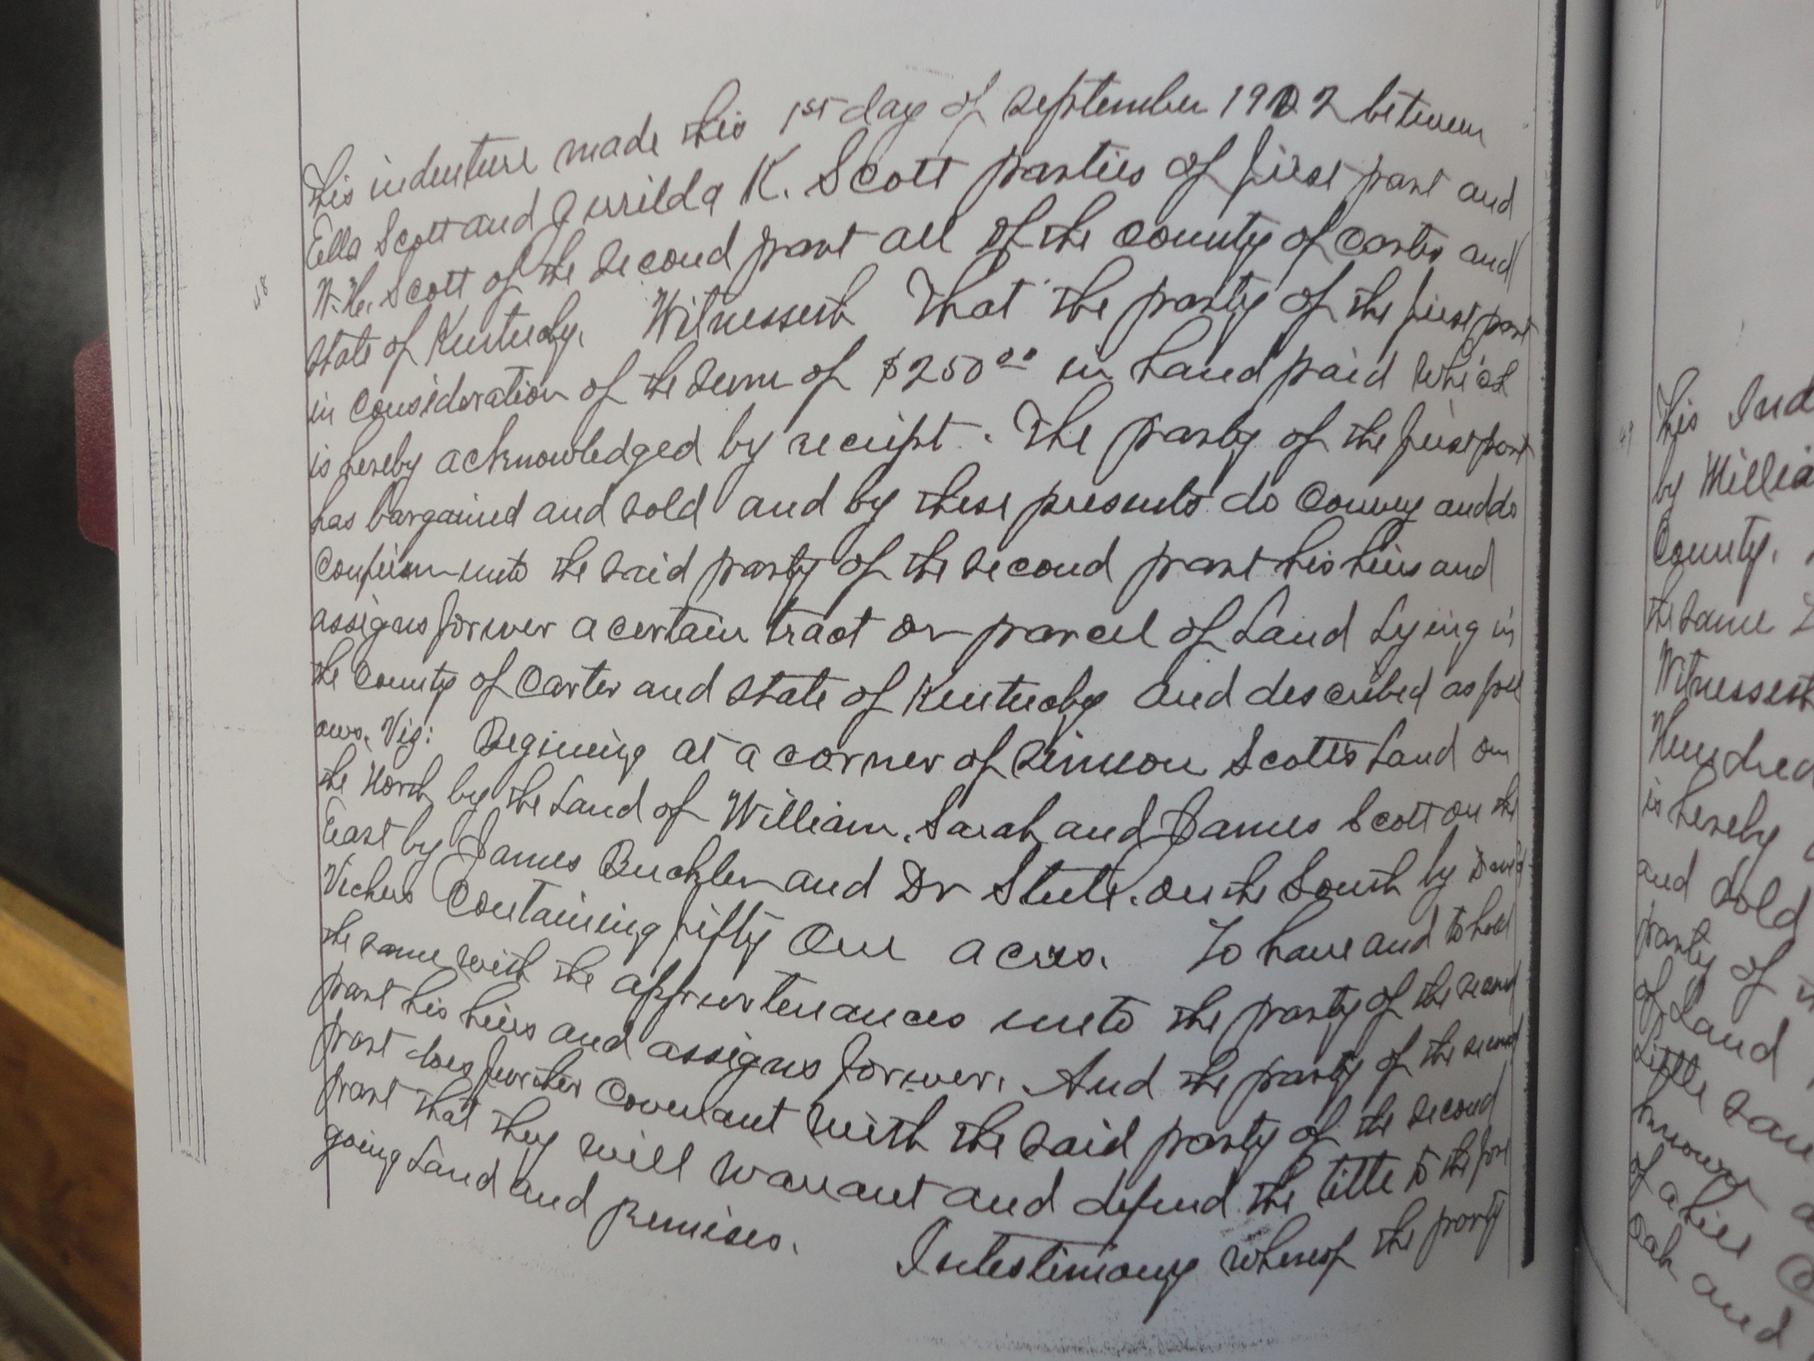 This indenture made this 1st day of September 1902 between
Ella Scott and Jurilda K. Scott parties of first part and
W. H. Scott of the second part all of the county of Carter and
State of Kentucky. Witnesseth That the party of the first part
in consideration of the sum of $250⁰⁰ in hand paid which
is hereby acknowledged by reciept. The party of the first part
has bargained and sold and by these presents do Convey and do
Confirm unto the said party of the second part his heirs and
assigns forever a certain tract or parcel of Land Lying in
the County of Carter and State of Kentucky and described as foll
ows. Viz: Begining at a corner of Simeon Scotts Land on
the North by the Land of William, Sarah and James Scott on the
East by James Buckler and Dr Steele. on the South by David
Vickers Containing fifty One acres. To have and to hold
the same with the appurtenances unto the party of the second
part his heirs and assigns forever. And the party of the second
part does further covenant with the said party of the second
part that they will warrant and defend the title to the fore
going Land and premises. In testimony whereof the party
48
49
This Ind
by Willia
County.
the same
Witnesseth
Hundred
is hereby
and sold
party of
of Land
Little San
known
of a hill
Oak and